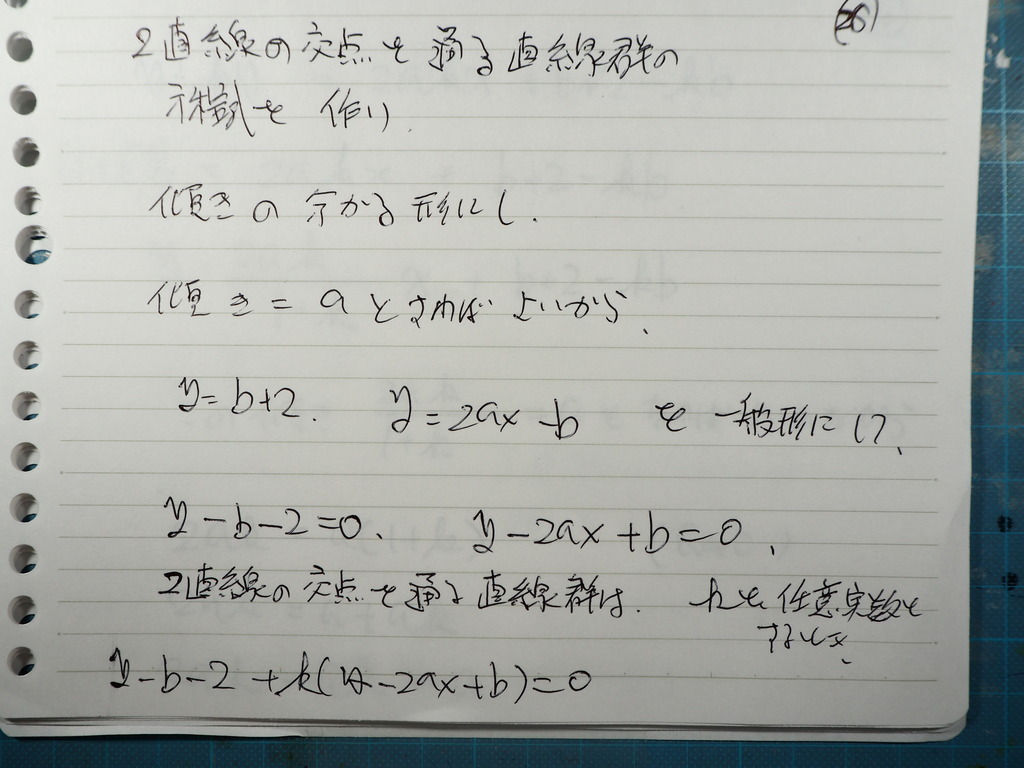 (26)
2直線の交点を通る直線群の
方程式を 作り,
傾きの分かる形にし.
傾き = a とすればよいから、
y = b+2. y = 2ax - b を 一般形にして、
y - b - 2 = 0. y - 2ax + b = 0 、
2直線の交点を通る直線群は. kを 任意実数と
するとき、
y - b - 2 + k(y - 2ax + b) = 0